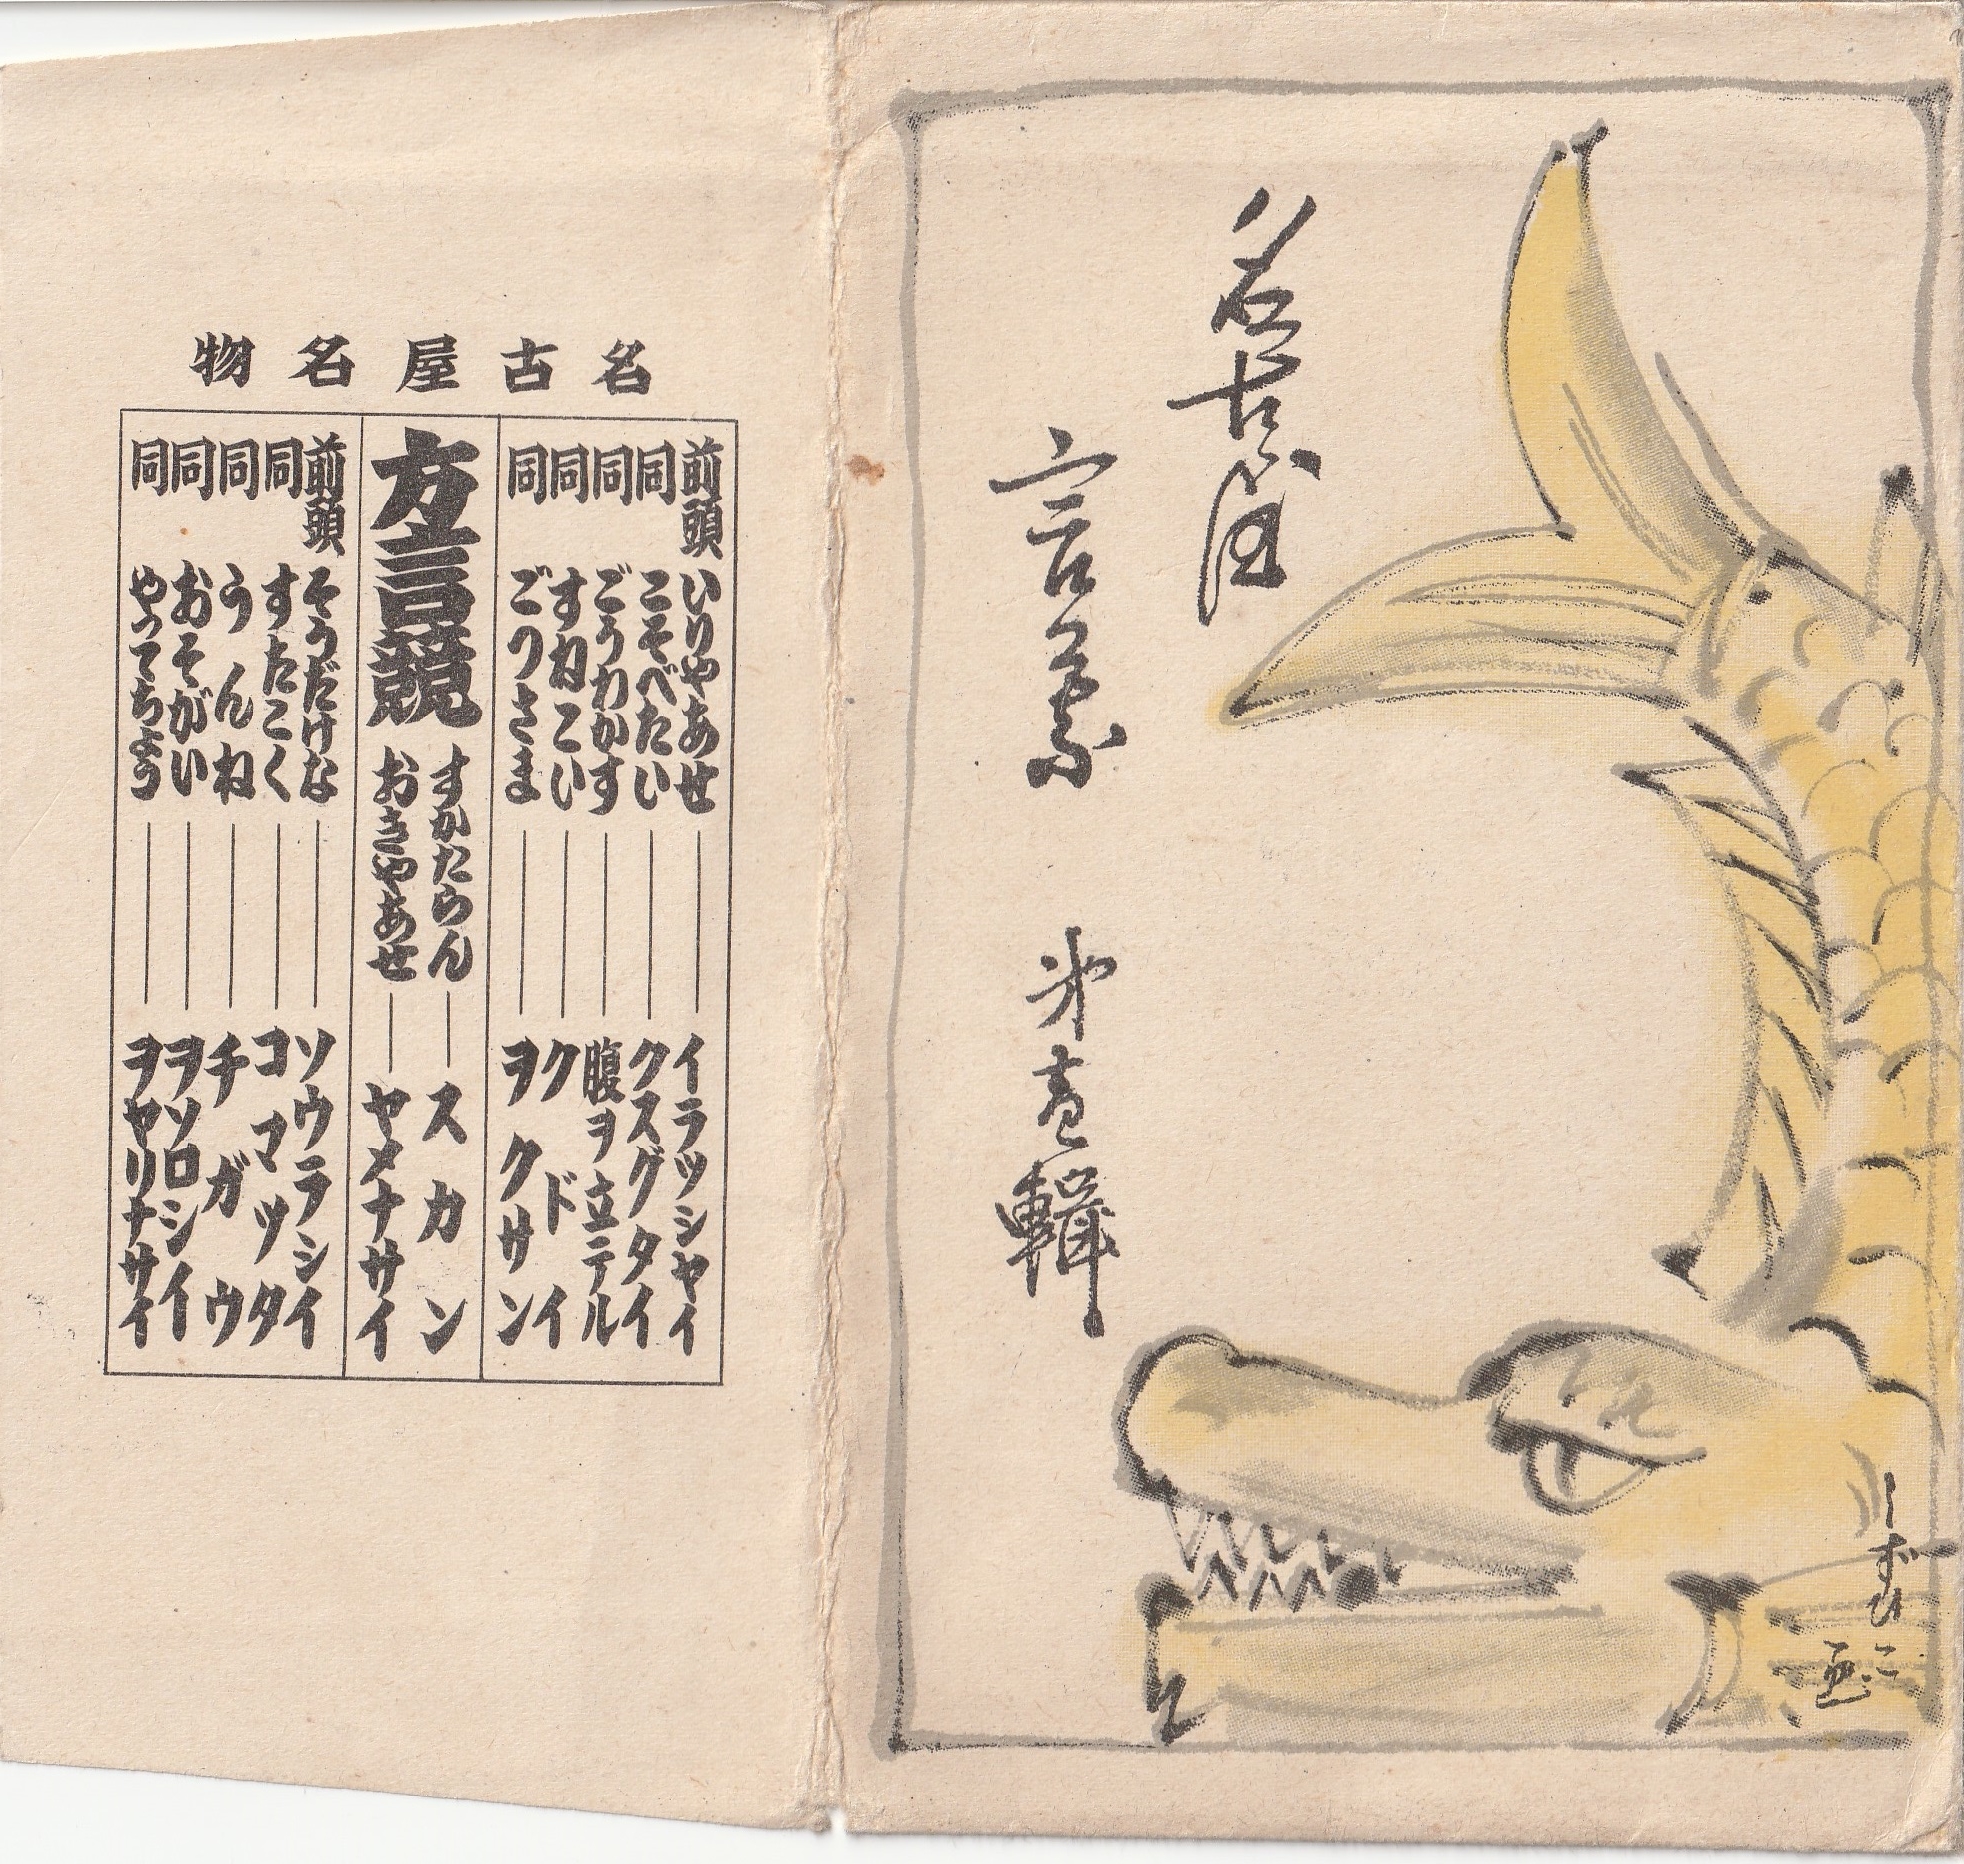 名古屋
言葉 第壹輯
しずひこ画
名古屋名物
前頭 いりやあせ ── イラツシヤイ
同 こそべたい ── クスグタイ
同 ごうわかす ── 腹ヲ立テル
同 すねこい ── クドイ
同 ごりさま ── ヲクサン
方言競
すかたらん ── スカン
おきやあせ ── ヤメナサイ
前頭 そうだけな ── ソウラシイ
同 すたこく ── コマツタ
同 うんね ── チガウ
同 おそがい ── ヲソロシイ
同 やつてちよう ── ヲヤリナサイ